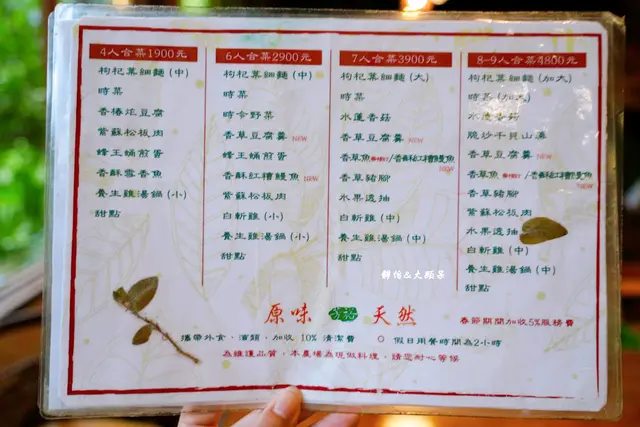 4人合菜1900元
枸杞葉細麵(中)
時菜
香椿炸豆腐
紫蘇松板肉
蜂王蛹煎蛋
香酥雪香魚
養生雞湯鍋(小)
甜點
6人合菜2900元
枸杞葉細麵(中)
時菜
時令野菜
香草豆腐羹 NEW
蜂王蛹煎蛋
香酥紅糟鰻魚 NEW
紫蘇松板肉
白斬雞(小)
養生雞湯鍋(小)
甜點
7人合菜3900元
枸杞葉細麵(大)
時菜
水蓮香菇
香草豆腐羹 NEW
香草魚 /香酥紅糟鰻魚 NEW
香草豬腳
水果透抽
白斬雞(中)
養生雞湯鍋(中)
甜點
8-9人合菜4800元
枸杞葉細麵(加大)
時菜(加大)
水蓮香菇
脆炒干貝山藥
香草豆腐羹 NEW
香草魚 /香酥紅糟鰻魚 NEW
香草豬腳
紫蘇松板肉
水果透抽
白斬雞(中)
養生雞湯鍋(中)
甜點
鮮伯&大頭家
原味 天然
春節期間加收5%服務費
攜帶外食、酒類,加收 10% 清潔費
○ 假日用餐時間為2小時
為維護品質,本農場為現做料理,請您耐心等候